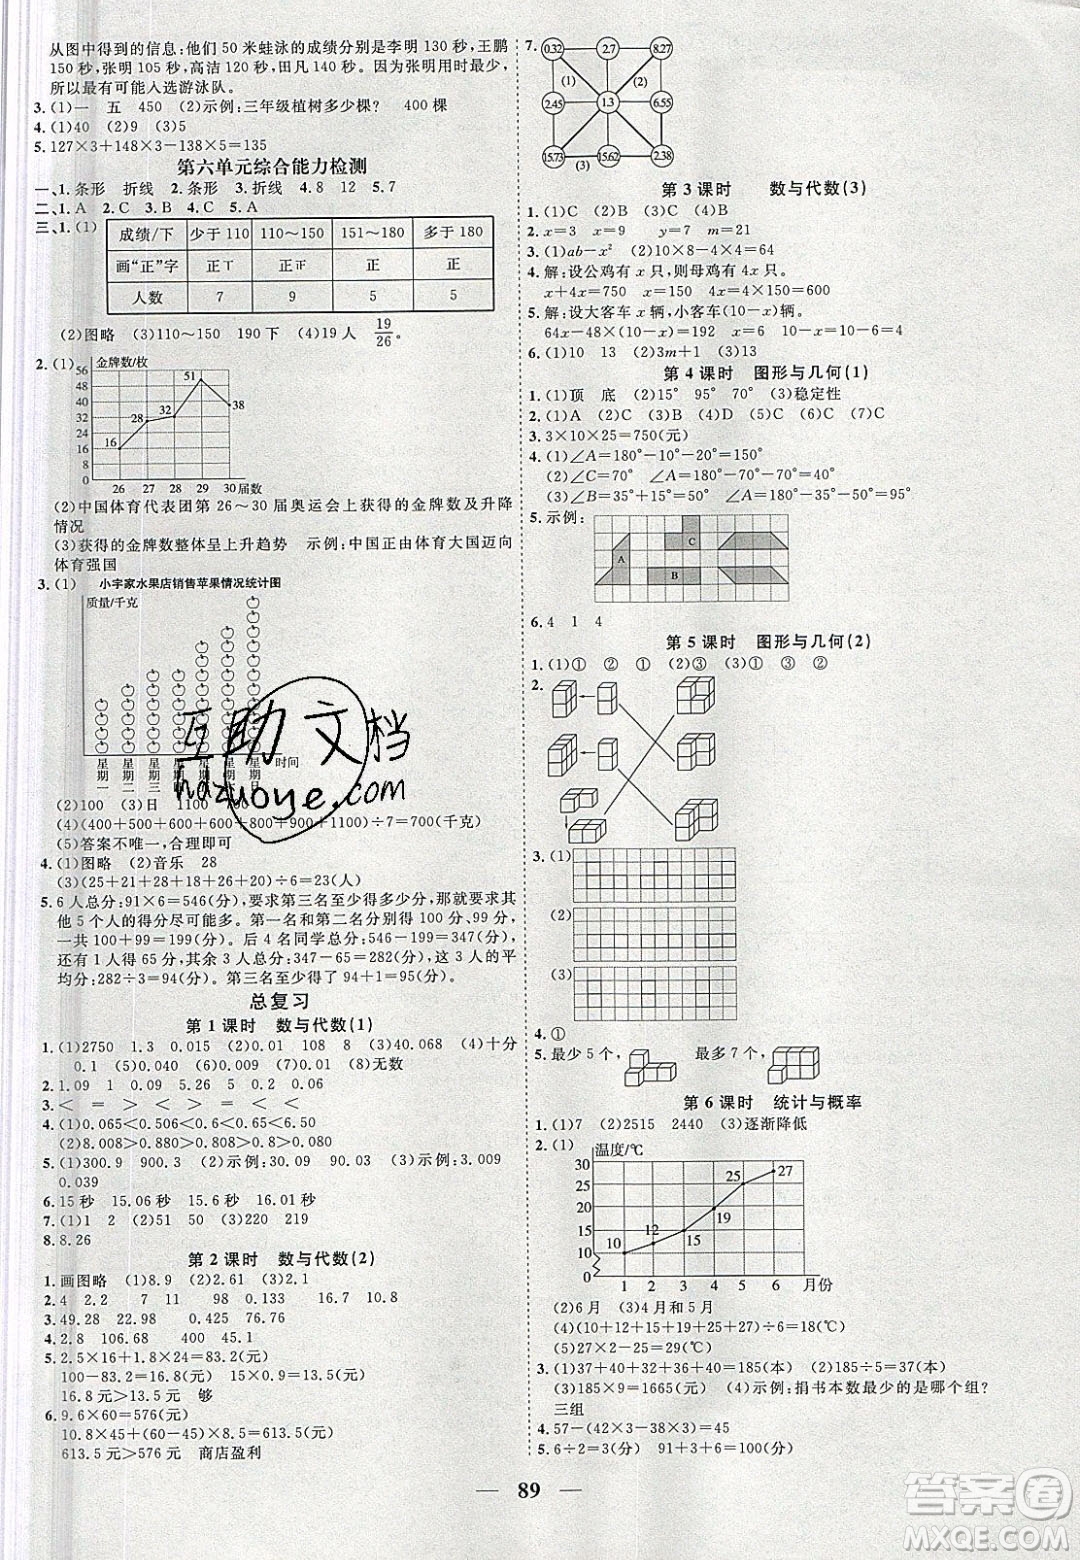 从图中得到的信息:他们 50 米蛙泳的成绩分别是李明 130 秒,王鹏
150 秒,张明 105 秒,高洁 120 秒,田凡 140 秒,因为张明用时最少,
所以最有可能入选游泳队。
3. (1)一 五 450 (2)示例:三年级植树多少棵? 400 棵
4. (1)40 (2)9 (3)5
5. 127×3+148×3-138×5=135
第六单元综合能力检测
一、1. 条形 折线 2. 条形 3. 折线 4. 8 12 5. 7
二、1. A 2. C 3. B 4. C 5. A
三、1. (1)
成绩/下 少于 110 110～150 151～180 多于 180
画“正”字 正丅 正正 正 正
人数 7 9 5 5
(2)图略 (3)110～150 190 下 (4)19 人 19/26.
2. (1)
金牌数/枚
56
48
40
32
24
16
8
0
16 28 32 51 38
26 27 28 29 30 届数
(2)中国体育代表团第 26～30 届奥运会上获得的金牌数及升降
情况
(3)获得的金牌数整体呈上升趋势 示例:中国正由体育大国迈向
体育强国
3. (1) 小宇家水果店销售苹果情况统计图
质量/千克
星期一 星期二 星期三 星期 星期 星期 星期日 时间
(2)100 (3)日 1100 400
(4)(400+500+600+600+800+900+1100)÷7=700(千克)
(5)答案不唯一,合理即可
4. (1)图略 (2)音乐 28
(3)(25+24+18+22+28+21)÷6=23(人)
5. 6 人总分:91×6=546(分),要求第三名至少得多少分,就要使其
他 5 个人的得分尽可能多。第一名和第二名分别得 100 分、99 分,
一共 100+99=199(分)。后 4 名同学总分:546-199=347(分),
还有 1 人得 65 分,其余 3 人总分:347-65=282(分),这 3 人的平
均分:282÷3=94(分)。第三名至少得了 94+1=95(分)。
总复习
第 1 课时 数与代数(1)
1. (1)2750 1.3 0.015 (2)0.01 108 8 (3)40.068 (4)十分
0.1 (5)0.040 (6)0.009 (7)0.01 (8)无数
2. 1.09 1 0.09 5.26 0.80 0.02
3. < = > < < =
4. (1)0.065<0.506<0.56<0.6<0.65
(2)8.008>0.880>0.88>0.808>0.8
5. (1)300.9 900.3 (2)示例:30.09 90.03 (3)示例:3.009
0.039
6. 15 秒 15.06 秒 15.6 秒 16.5 秒
7. (1)1 2 (2)51 50 (3)220 219
8. 8.26
第 2 课时 数与代数(2)
1. 画图略 (1)8.9 (2)2.61 (3)2.1
2. 4 2.2 7 11 98 0.133 16.7 10.8
3. 49.28 22.98 0.034 0.0245
4. 2.8 106.68 400 45.1
5. 2.5×16+1.8×24=83.2(元)
100-83.2=16.8(元) 15×0.9=13.5(元)
16.8 元>13.5 元 够
6. 9.6×60=576(元)
10.8×45+(60-45)×8.5=613.5(元)
613.5 元>576 元 商店盈利
7.
0.32 2.7 8.27
(1) (2)
2.45 1.3 6.55
(3)
15.73 15.62 2.38
第 3 课时 数与代数(3)
1. (1)C (2)B (3)C (4)B
2. x=3 x=6 y=7 m=21
3. (1)ab-x² (2)10×8-4×4=64
4. 解:设公鸡有 x 只,则母鸡有 4x 只。
x+4x=750 x=150 4x=4×150=600
5. 解:设大客车 x 辆,小客车(10-x)辆。
64x-48×(10-x)=192 x=6 10-x=10-6=4
6. (1)10 13 (2)3m+1 (3)13
第 4 课时 图形与几何(1)
1. (1)顶 底 (2)15° 95° 70° (3)稳定性
2. (1)A (2)C (3)B (4)C
3. 3×10×25=750(元)
4. (1)∠A=180°-10°-20°=150°
(2)∠C=70° ∠A=180°-70°-70°=40°
(3)∠B=35°+15°=50° ∠A=180°-50°-35°=95°
5. 示例:
A B C
6. 4 1 4
第 5 课时 图形与几何(2)
1. (1)① ② ① (2)③ (3)① ③ ②
2.
3. (1)
(2)
(3)
4. ①
5. 最少 5 个, 最多 7 个,
第 6 课时 统计与概率
1. (1)7 (2)2515 2440 (3)逐渐降低
2. (1)
温度/℃
30
25
20
15
10
0
10 12 15 19 25 27
1 2 3 4 5 6 月份
(2)6 月 (3)4 月和 5 月
(4)(10+12+15+19+25+27)÷6=18(℃)
(5)27×2-25=29(℃)
3. (1)37+41+32+35+40=185(本) (2)185÷5=37(本)
(3)185×9=1665(元) (4)示例:捐书本数最少的是哪个组?
三组
4. 57-(42×3-38×3)=45
5. 6÷2=3(分) 91+3=94(分)
89
互助文档
hdzuoye.com
答案圈
MXQE.COM